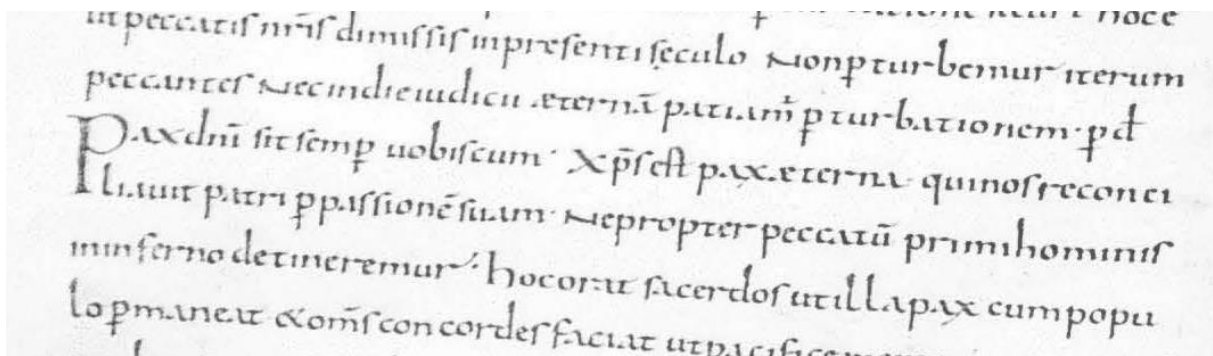 hoc e
ut peccatis nr̄is dimissis in presenti sęculo Non p̲ turbemur iterum
peccantes Nec in die iudicii æternā patiam̄ p̲ turbationem · p̲ d̄
Pax dn̄i sit semp̲ uobiscum · Xp̄s est pax æterna qui nos reconci
liauit patri p̲ passionē suam Ne propter peccatū primi hominis
in inferno detineremur · hoc orat sacerdos ut illa pax cum popu
lo p̲maneat & om̄s concordes faciat ut pacifice